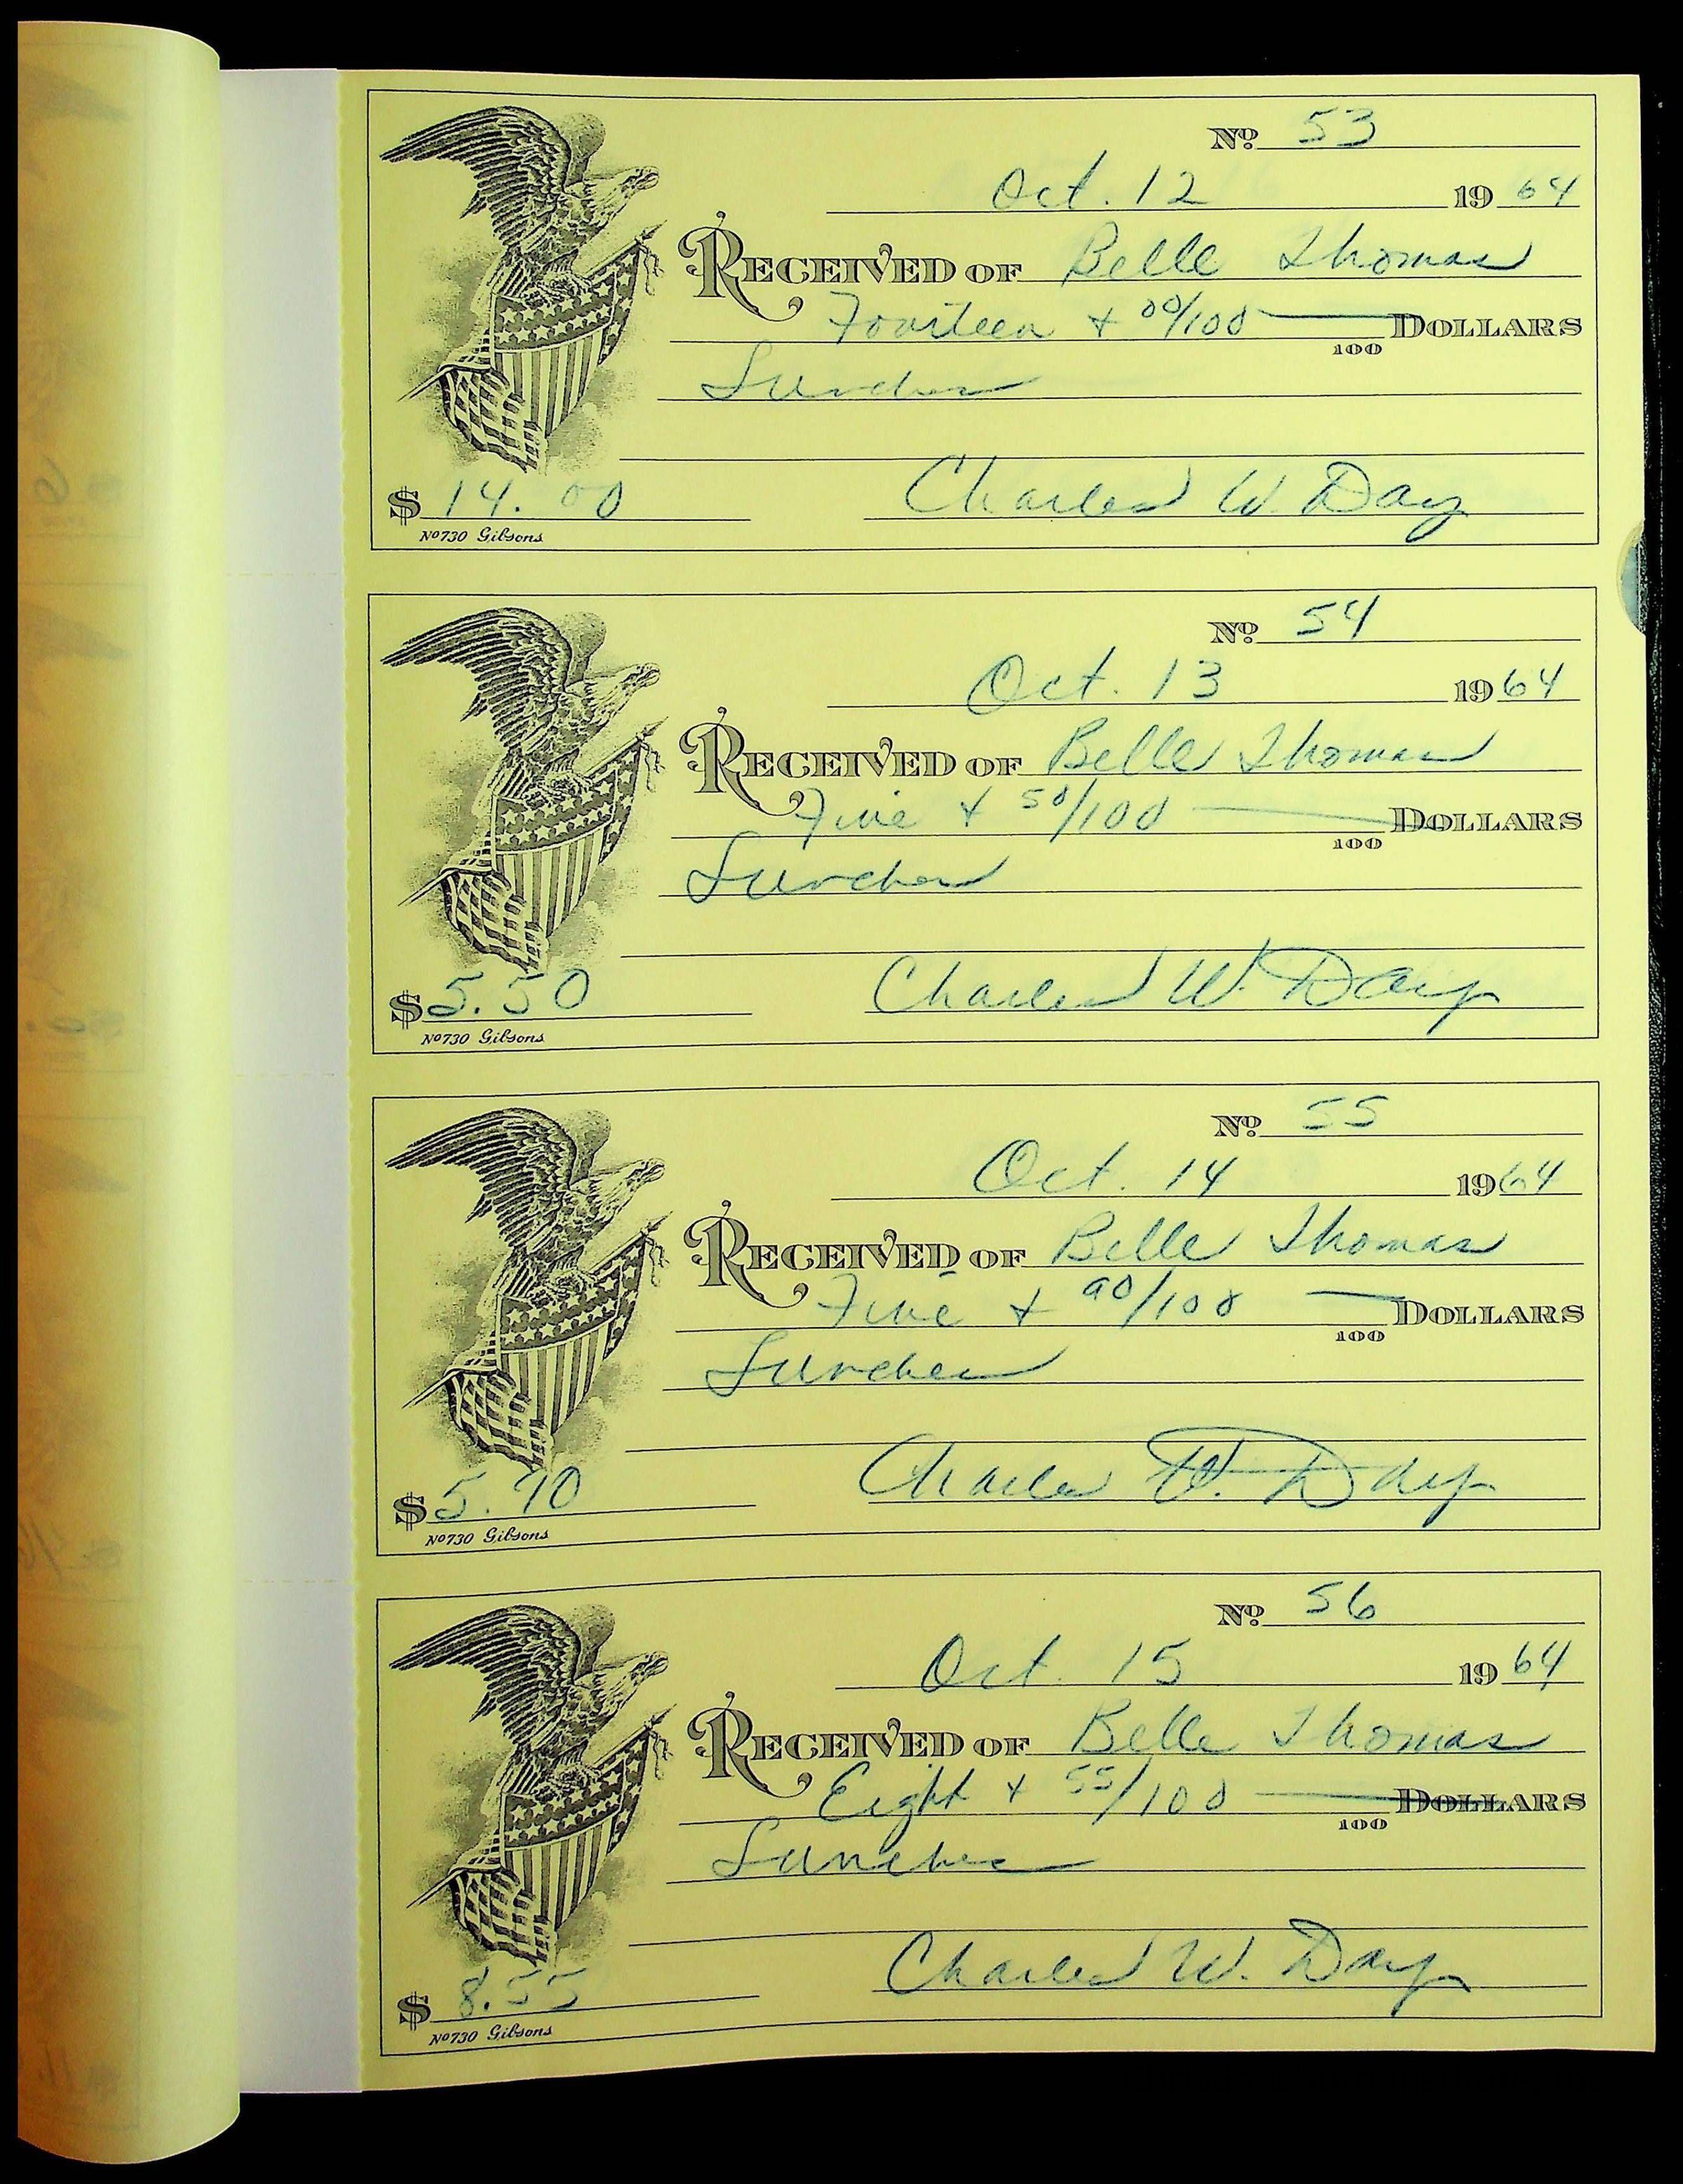 No. 53
Oct. 12 1964
RECEIVED OF Belle Thomas
Fourteen + 00/100 — DOLLARS
100
Lunches
$ 14.00 Charles W. Day
No 730 Gibsons
No. 54
Oct. 13 1964
RECEIVED OF Belle Thomas
Five + 50/100 — DOLLARS
100
Lunches
$ 5.50 Charles W. Day
No 730 Gibsons
No. 55
Oct. 14 1964
RECEIVED OF Belle Thomas
Five + 90/100 — DOLLARS
100
Lunches
$ 5.90 Charles W. Day
No 730 Gibsons
No. 56
Oct. 15 1964
RECEIVED OF Belle Thomas
Eight + 55/100 — DOLLARS
100
Lunches
$ 8.55 Charles W. Day
No 730 Gibsons